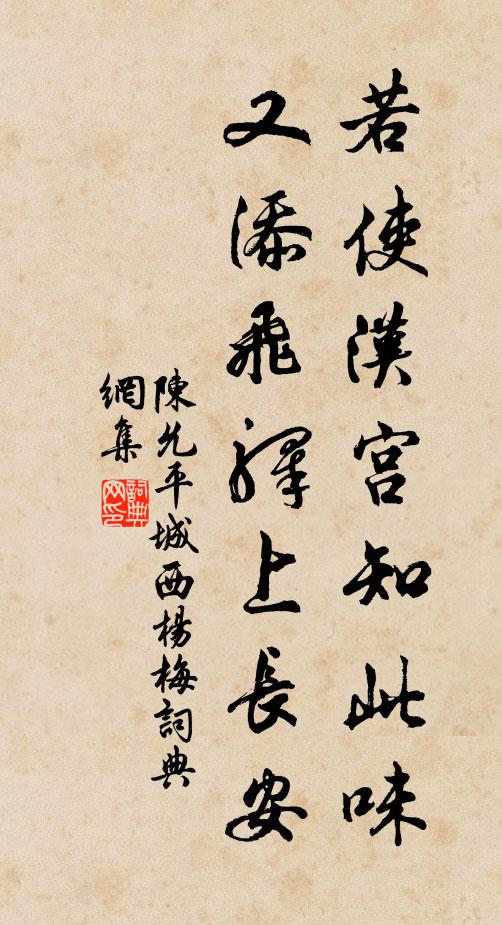 若使漢宮知此味
又添飛驛上長安
陳允平城西楊梅詞典
網集
詞典
网印